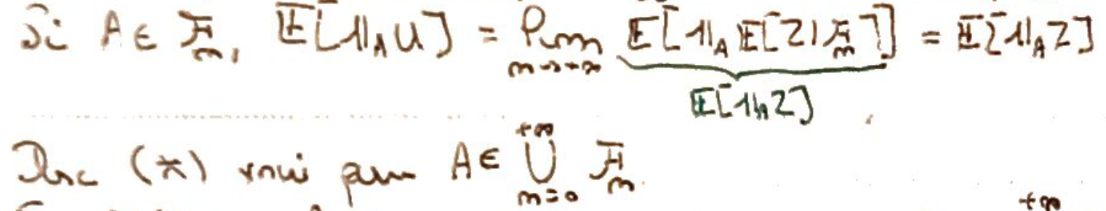 Si A ∈ 𝓕_m, 𝔼[𝟙_A U] = lim_{m→+∞} 𝔼[𝟙_A 𝔼[Z|𝓕_m]] = 𝔼[𝟙_A Z]
𝔼[𝟙_A Z]
Donc (*) vrai pour A ∈ ⋃_{m=0}^{+∞} 𝓕_m.
+∞